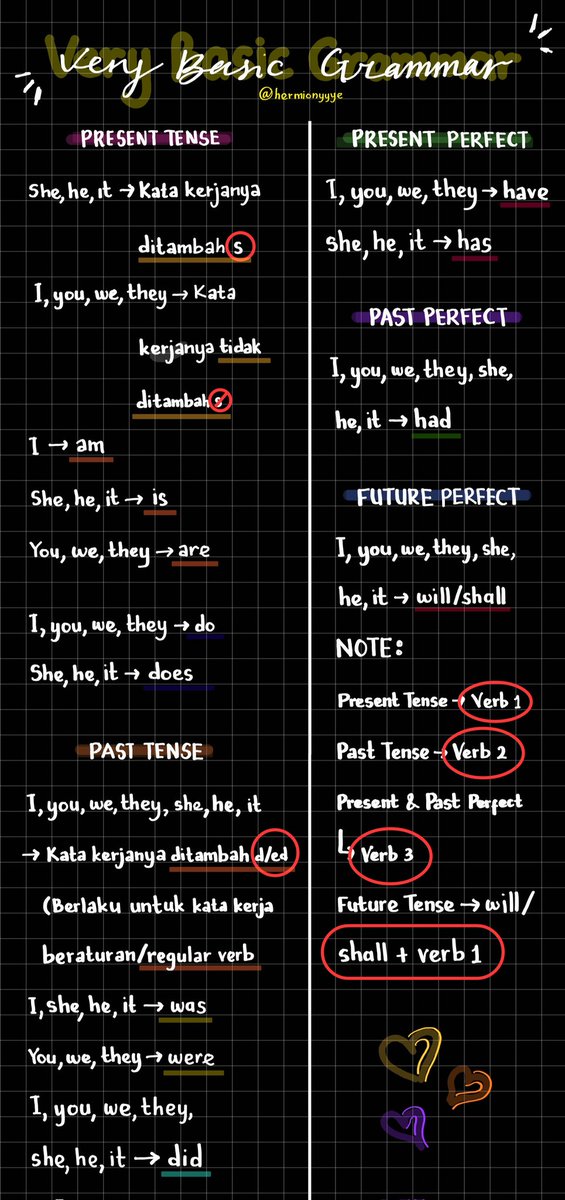 Very Basic Grammar
@hermionyyye
PRESENT TENSE
She, he, it → Kata kerjanya
ditambah s
I, you, we, they → Kata
kerjanya tidak
ditambah s
I → am
She, he, it → is
You, we, they → are
I, you, we, they → do
She, he, it → does
PAST TENSE
I, you, we, they, she, he, it
→ Kata kerjanya ditambah d/ed
(Berlaku untuk kata kerja
beraturan/regular verb
I, she, he, it → was
You, we, they → were
I, you, we, they,
she, he, it → did
PRESENT PERFECT
I, you, we, they → have
she, he, it → has
PAST PERFECT
I, you, we, they, she,
he, it → had
FUTURE PERFECT
I, you, we, they, she,
he, it → will/shall
NOTE:
Present Tense → Verb 1
Past Tense → Verb 2
Present & Past Perfect
↳ Verb 3
Future Tense → will/
shall + verb 1